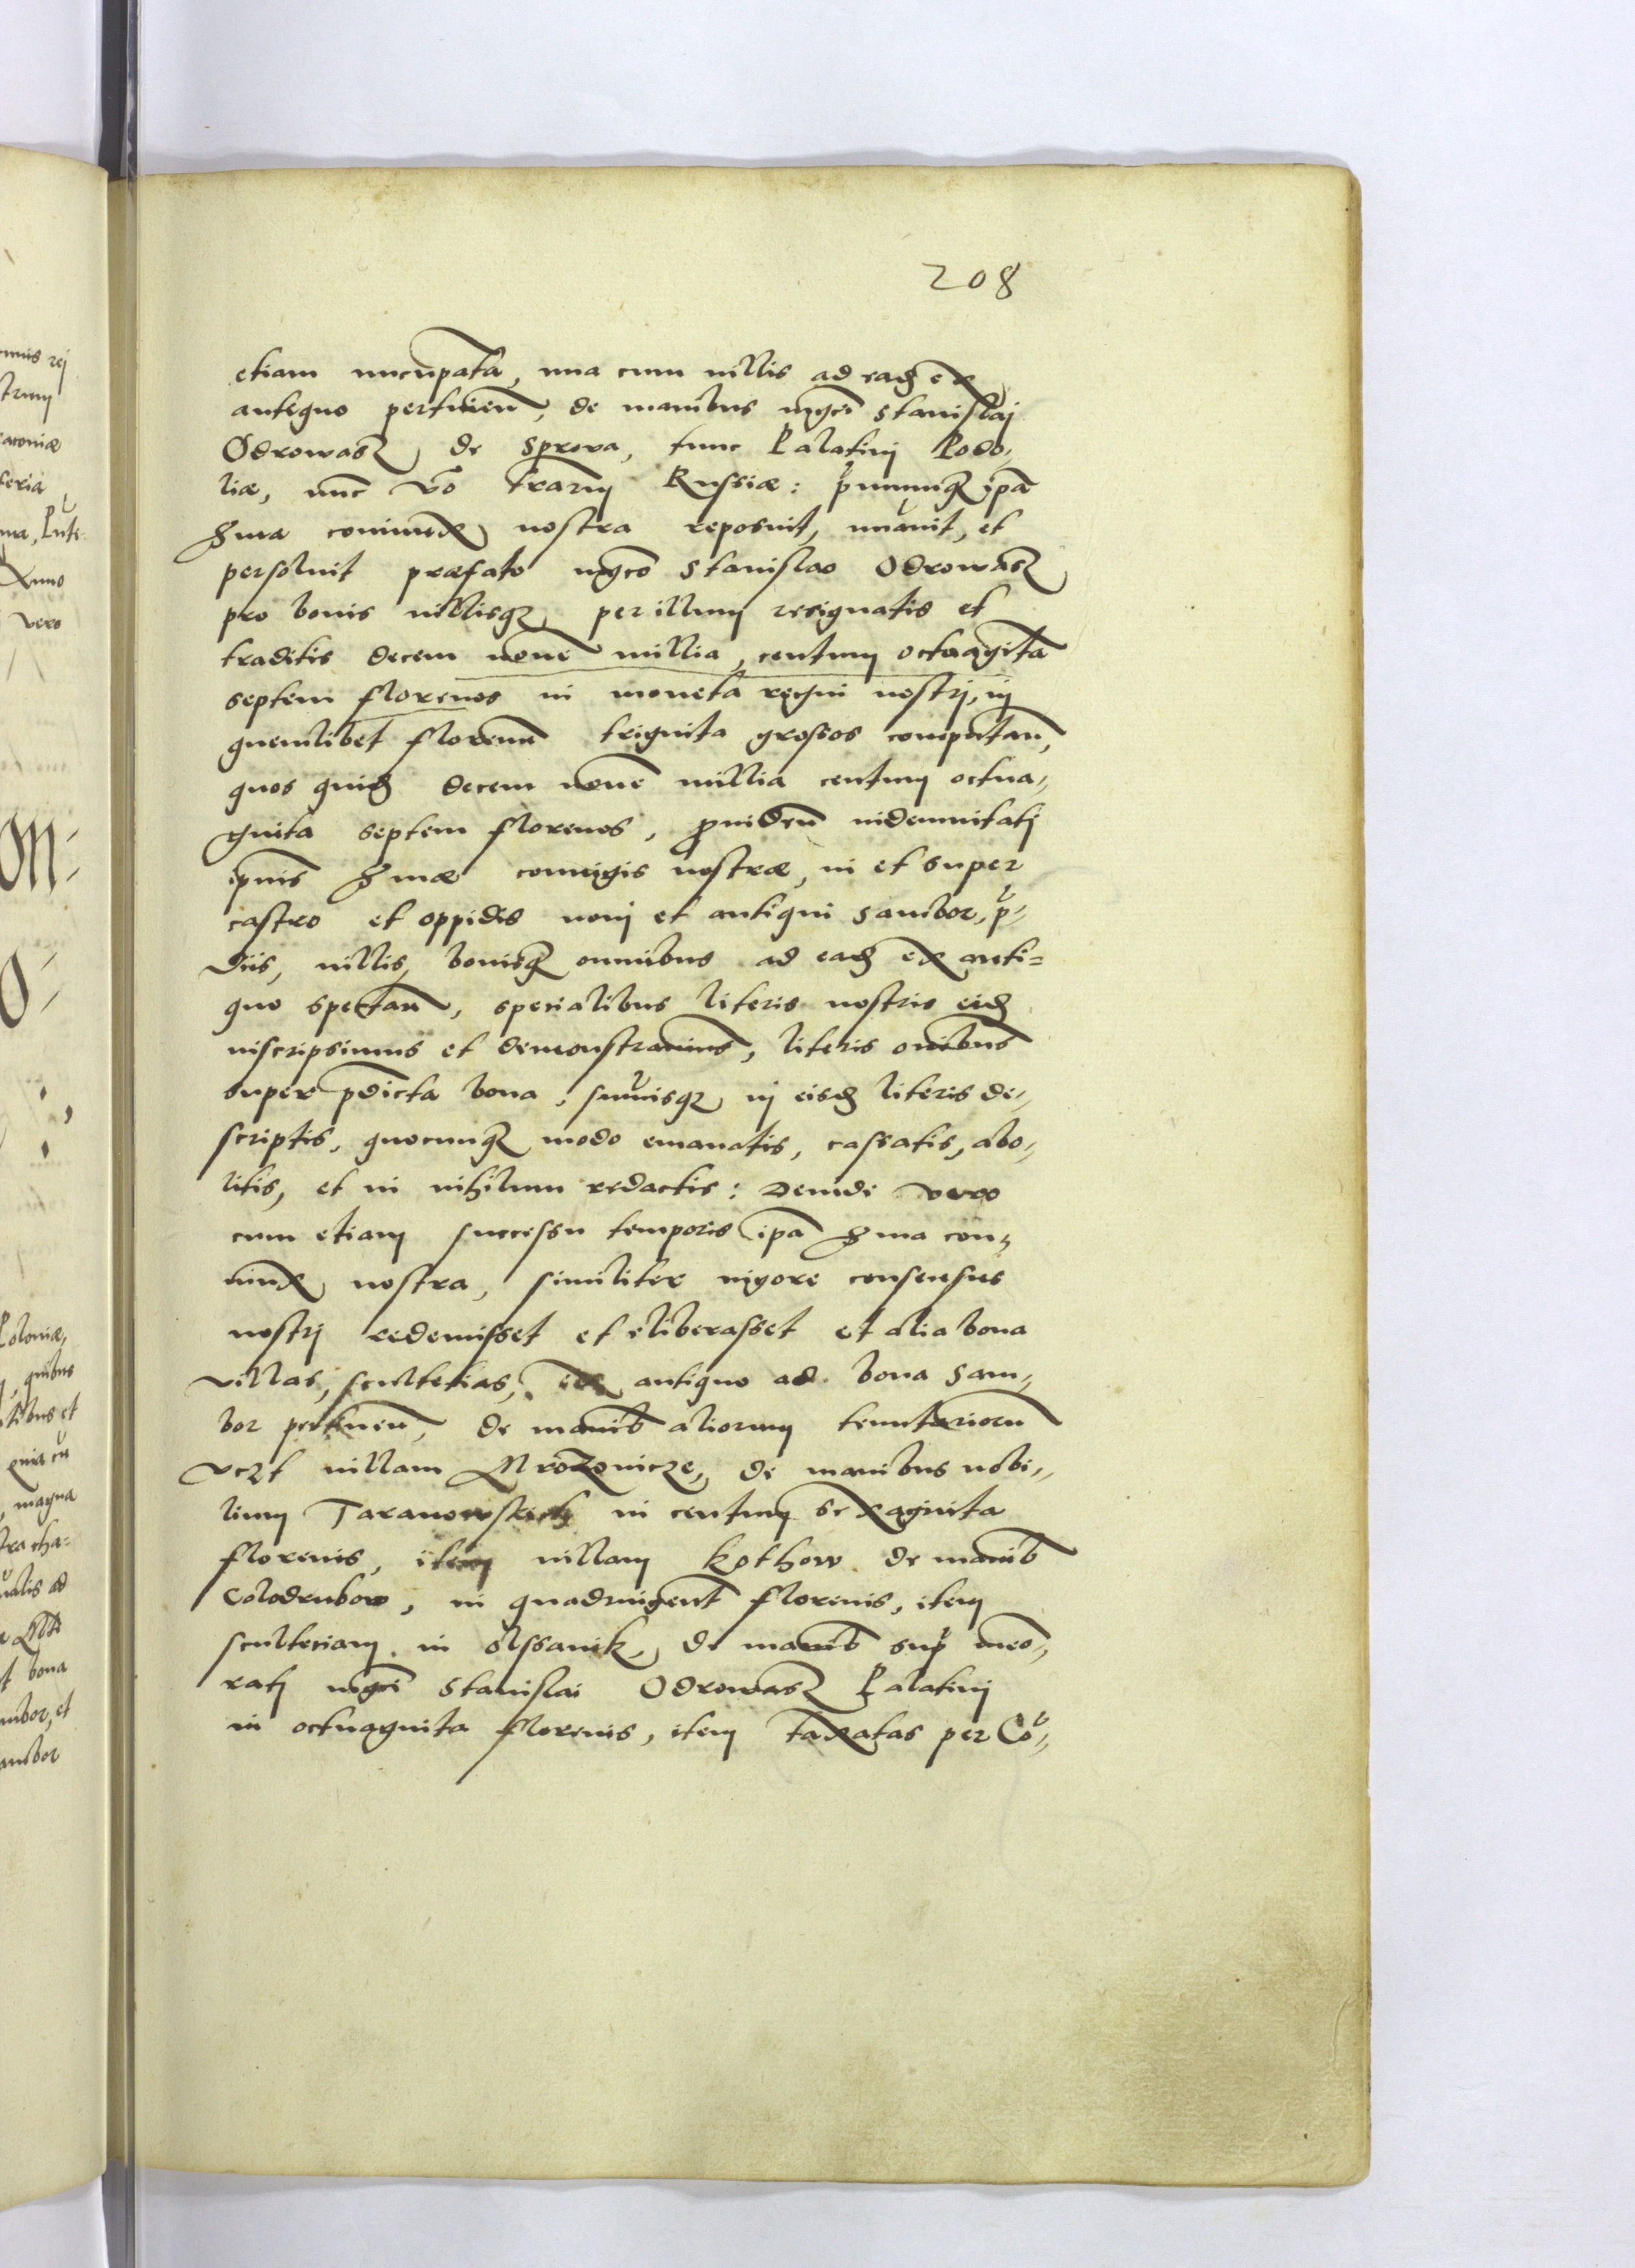 208
etiam nuncupata, una cum villis ad eadē ex
antiquo pertineñ, de manibus mgci Stanislaj
Odrowasz de Sprova, tunc Palatinj Podo,
liæ, nunc vo trarum Russiæ: pnumqz ipa
Sma coniunx nostra reposuit, nuavit, et
persolvit præfato mgco Stanislao Odrowasz
pro bonis villisqz per illum resignatis et
traditis decem novē millia, centum octuagīta
septem florenos in moneta regni nostrj, in
quemlibet florenū triginta grossos computañ,
quos quidē decem novē millia centum octua,
ginta septem florenos, providen indemnitatj
ipius Smæ coniugis nostræ, in et super
castro et oppidis novi et antiqui Sambor, p=
diis, villis, bonisqz omnibus ad eadē ex anti=
quo spectañ, specialibus literis nostris eidē
inscripsimus et demonstravimus, literis oībus
super pdicta bona, sumisqz in eisdē literis de,
scriptis, quocunqz modo emanatis, cassatis, abo,
litis, et in nihilum redactis: Deinde vero
cum etiam successu temporis ipa Sma con,
iunx nostra, similiter vigore consensus
nostrj redemisset et eliberasset et alia bona
villas, scultetias, ex antiquo ad bona Sam,
bor pertineñ, de manib aliorum tenutarioru
vczt villam Mrozowicze, de manibus nobi,
lium Taranowskich in centum sexaginta
florenis, item villam Kothow de manib
Colodrubow, in quadringent florenis, item
scultetiam in Olssanik, de manib sup meo,
ratj mgci Stanislai Odrowasz Palatinj
in octuaginta florenis, item taxatas per Co,